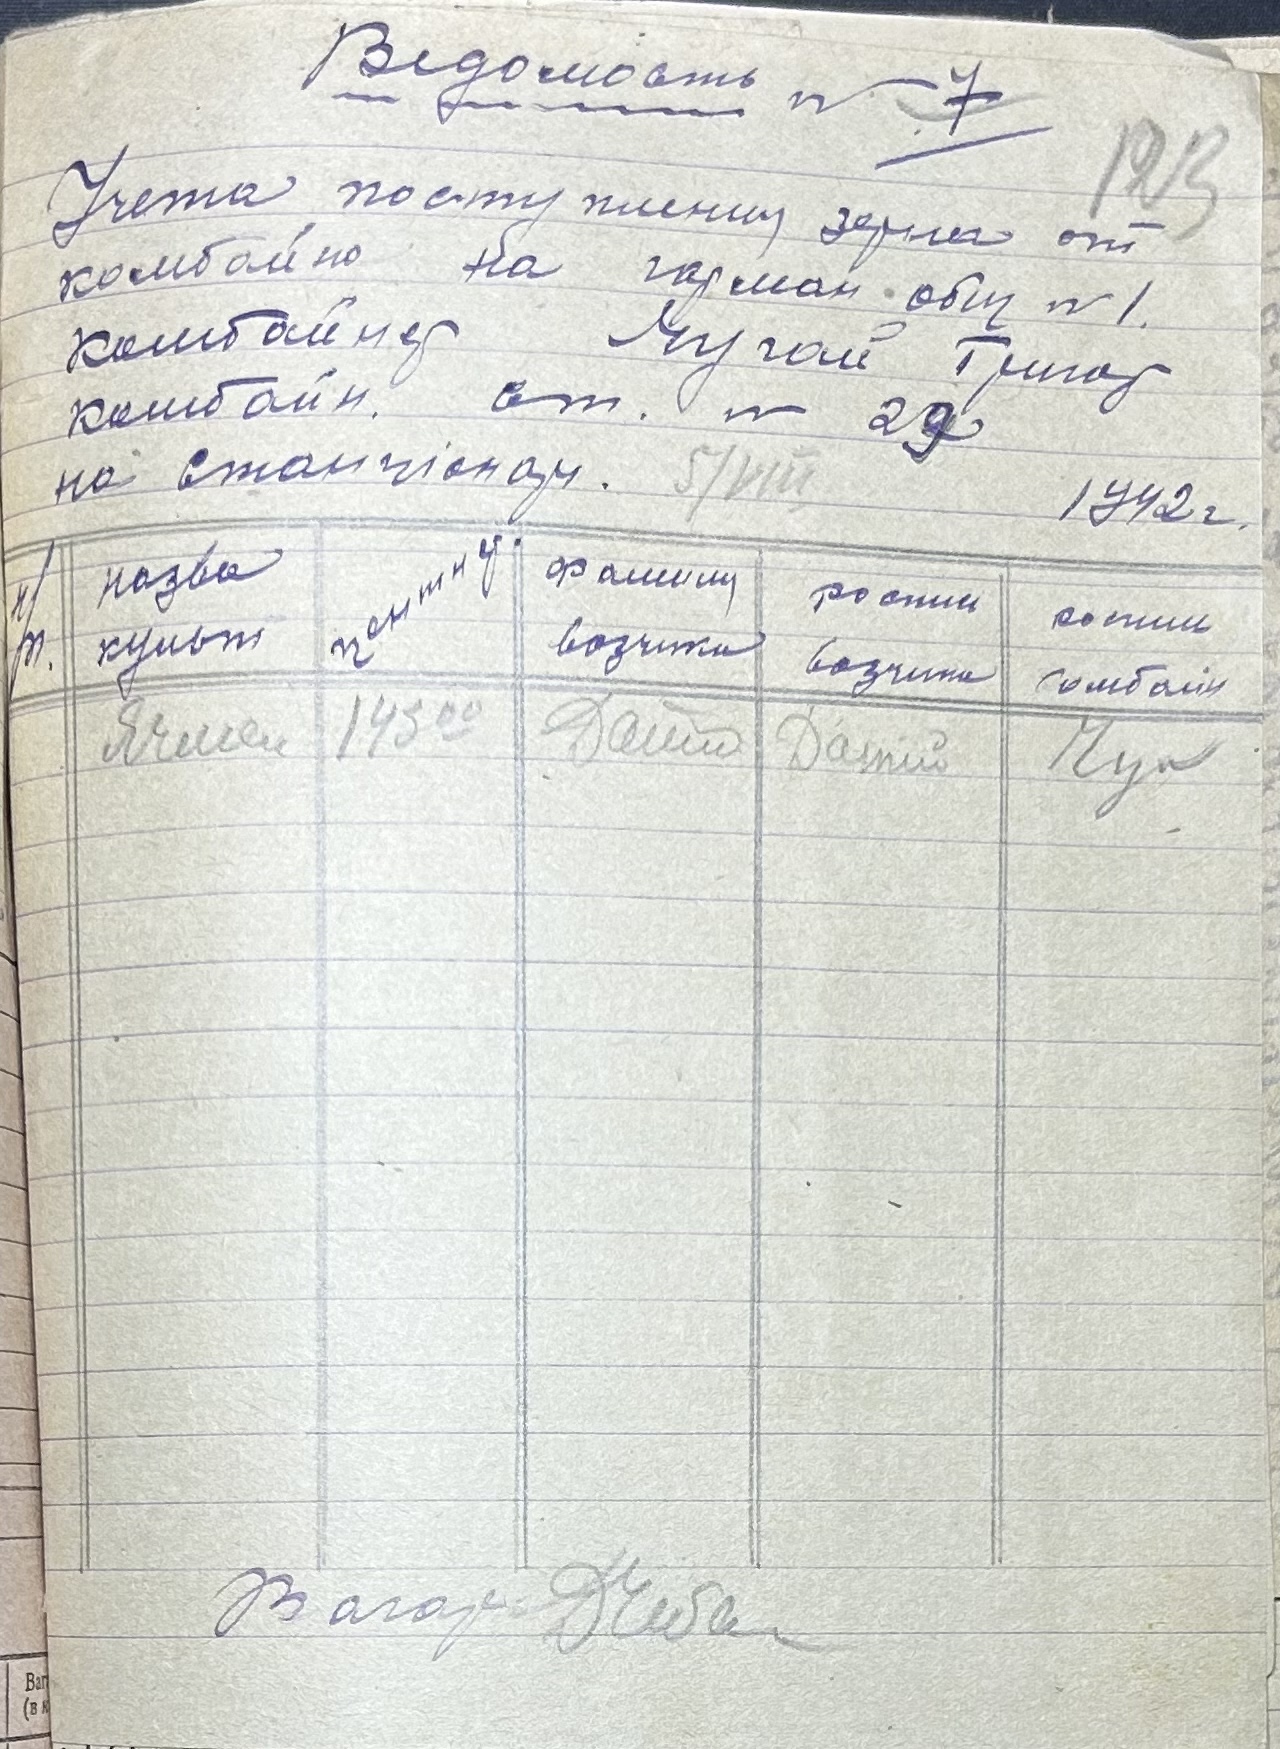 Ведомость № 7
123
Учета поступления зерна от
комбайно на гарман общ № 1.
комбайнер Чугай Григор
комбайн. ст. № 29
на Станціонар. 5/VIII 1942 г.
н/п. назва культ центну. фамилия возчика роспис возчика роспис комбайн
Ячмен 145 00 Чуг
Вагар
Ваг
(в к